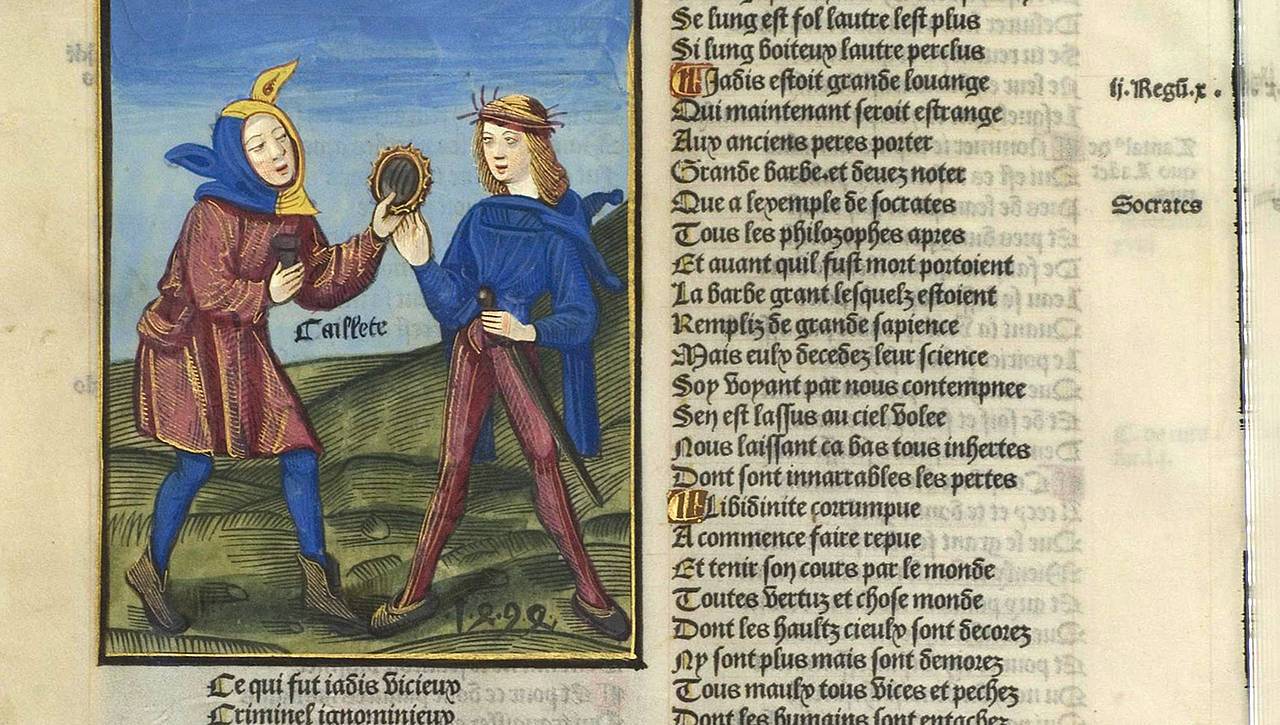 Caillete
1.4.9.9.
Ce qui fut iadis vicieux
Criminel ignominieux
Se lung est fol lautre lest plus
Si lung boiteux lautre perclus
Jadis estoit grande louange
Qui maintenant seroit estrange
Aux anciens peres porter
Grande barbe. et devez noter
Que a lexemple de socrates
Tous les philozophes apres
Et auant quil fust mort portoient
La barbe grant lesquelz estoient
Rempliz de grande sapience
Mais eulx decedez leur science
Soy voyant par nous contempnee
Sen est lassus au ciel volee
Nous laissant ca bas tous inhertes
Dont sont innarrables les pertes
Libidinite corrumpue
A commence faire repue
Et tenir son cours par le monde
Toutes vertuz et chose monde
Dont les haultz cieulx sont decorez
Ny sont plus mais sont demorez
Tous maulx tous vices et pechez
Dont les humains sont entachez
ij. Regū. x.
Socrates